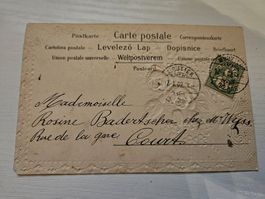 Postkarte Carte postale Correspondenzkarte
Cartolina postale Levelező Lap Dopisnice Brefkort
Union postale universelle Weltpostverein Union postale
Postcard
Mademoiselle
Rosine Badertscher chez Mr
Rue de la gare
Court